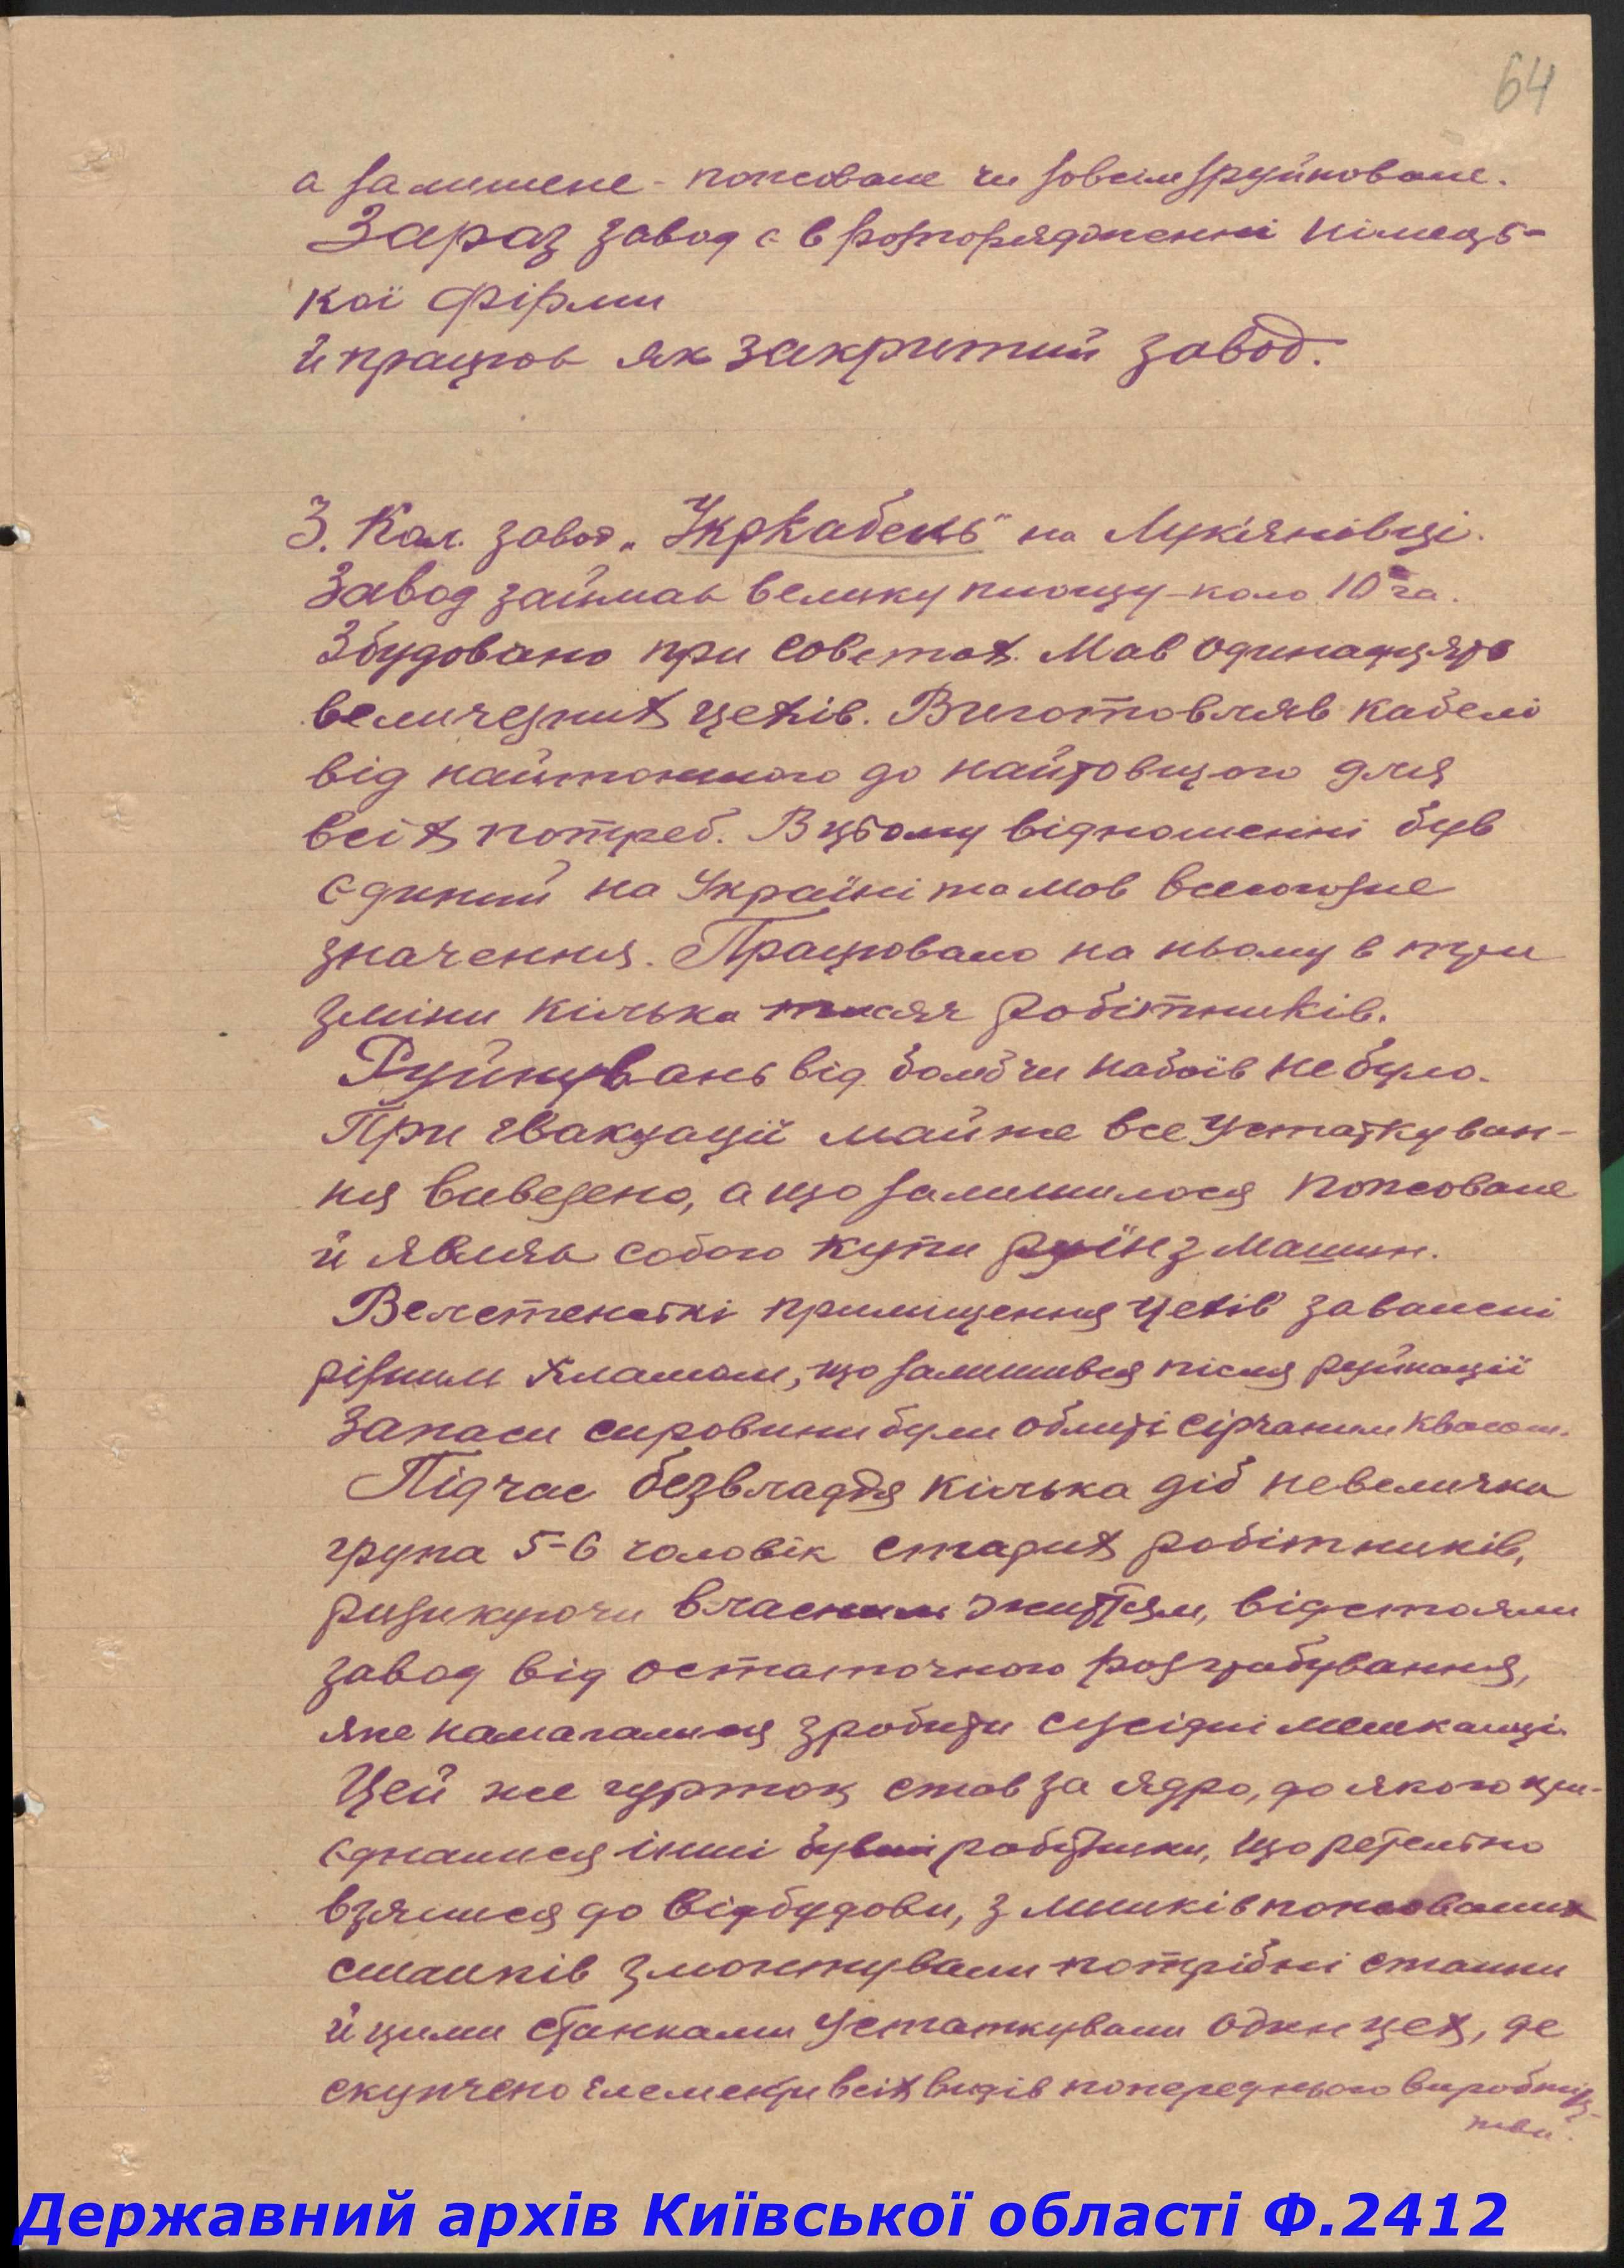 64
а залишене - попсоване чи зовсім зруйноване.
Зараз завод є в розпорядженні німець-
кої фірми
й працює як закритий завод.
3. Кол. завод „Укркабель" на Лук'янівці.
Завод займає велику площу - коло 10 га.
Збудовано при советах. Мав одинадцять
величезних цехів. Виготовляв кабелі
від найтоншого до найтовщого для
всіх потреб. В цьому відношенні був
єдиний на Україні та мав всесоюзне
значення. Працювало на ньому в три
зміни кілька тисяч робітників.
Руйнувань від бомб чи набоїв не було.
При евакуації майже все устаткуван-
ня вивезено, а що залишилося попсоване
й являє собою купи руїн з машин.
Велетенські приміщення цехів завалені
різним хламом, що залишився після руйнації
Запаси сировини були облиті сірчаним квасом.
Підчас безвладдя кілька діб невеличка
група 5-6 чоловік старих робітників,
ризикуючи власним життям, відстояли
завод від остаточного розграбування,
яке намагалися зробити сусідні мешканці.
Цей же гурток став за ядро, до якого при-
єдналися інші бувші робітники, що ретельно
взялися до відбудови, з лишків попсованих
станків змонтували потрібні станки
й цими станками устаткували один цех, де
скупчено елементи всіх видів попереднього виробниц-
тва.
Державний архів Київської області Ф.2412